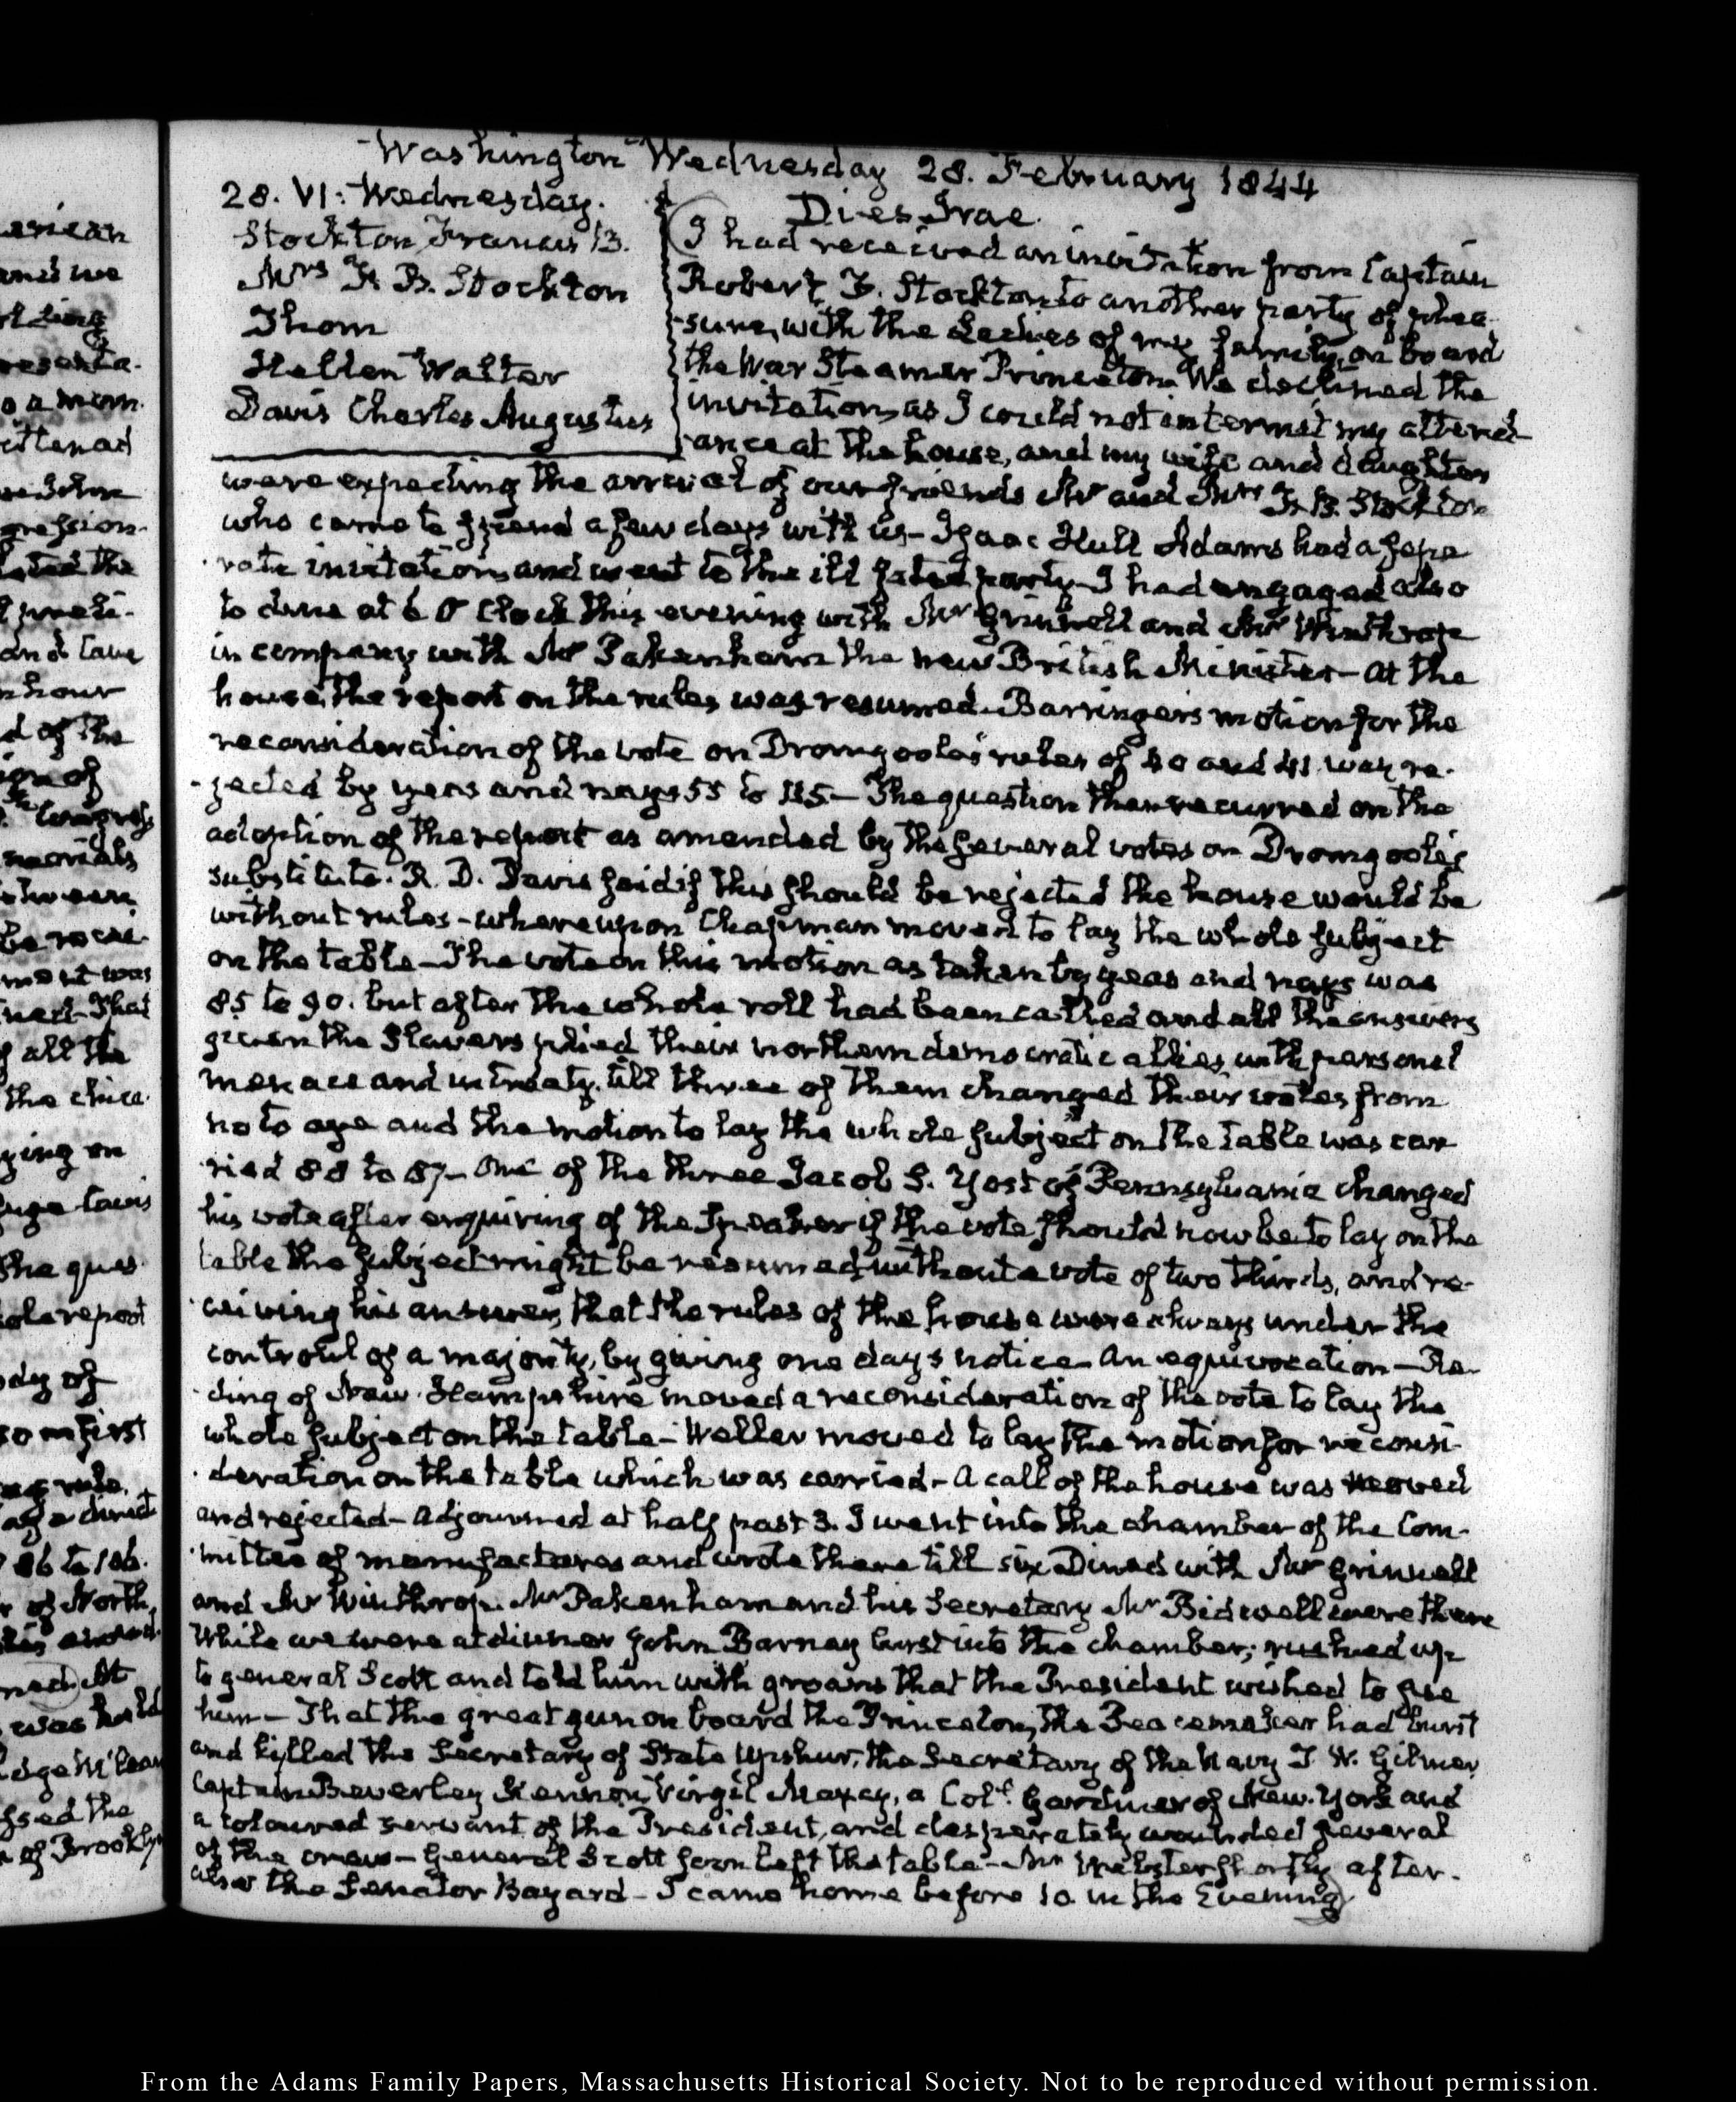 Washington Wednesday 28. February 1844
28. VI: Wednesday.
Stockton Francis B.
Mrs F. B. Stockton
Thom
Hellen Walter
Davis Charles Augustus
Dies Irae.
I had received an invitation from Captain
Robert F. Stockton to another party of plea-
sure, with the Ladies of my family, on board
the War Steamer Princeton. We declined the
invitation, as I could not intermit my attend-
ance at the house, and my wife and daughter
were expecting the arrival of our friends Mr and Mrs F. B. Stockton
who came to spend a few days with us— Isaac Hull Adams had a sepa-
rate invitation, and went to the ill fated party— I had engaged also
to dine at 6 O'Clock this evening with Mr Grinnell and Mr Winthrop
in company with Mr Pakenham the new British Minister— At the
house, the report on the rules was resumed. Barringer's motion for the
reconsideration of the vote on Dromgoole's rules of 40 and 41 was re-
jected by yeas and nays 55 to 115— The question then recurred on the
adoption of the report as amended by the several votes on Dromgoole's
substitute. R. D. Davis said if this should be rejected the house would be
without rules— whereupon Chapman moved to lay the whole subject
on the table— The vote on this motion as taken by yeas and nays was
85 to 90. but after the whole roll had been called and all the answers
given the Slavers plied their northern democratic allies, with personal
menace and intreaty, till three of them changed their votes from
no to aye and the motion to lay the whole subject on the table was car-
ried 88 to 87— One of the three Jacob S. Yost of Pennsylvania changed
his vote after enquiring of the Speaker if the vote should now be to lay on the
table the subject might be resumed without a vote of two thirds, and re-
ceiving his answer, that the rules of the house were always under the
controul of a majority, by giving one days notice— An equivocation— Re-
ding of New-Hampshire moved a reconsideration of the vote to lay the
whole subject on the table— Weller moved to lay the motion for reconsi-
deration on the table which was carried— A call of the house was moved
and rejected— Adjourned at half past 3. I went into the chamber of the Com-
mittee of manufactures and wrote there till six Dined with Mr Grinnell
and Mr Winthrop. Mr Pakenham and his Secretary Mr Bidwell were there
While we were at dinner John Barney burst into the chamber; rushed up
to general Scott and told him with groans that the President wished to see
him— That the great gun on board the Princeton, the Peacemaker had burst
and killed the Secretary of State Upshur, the Secretary of the Navy T. W. Gilmer
Captain Beverley Kennon, Virgil Maxcy, a Coll. Gardiner of New-York and
a coloured servant of the President, and desperately wounded several
of the crew— General Scott soon left the table— Mr Webster shortly after.
also the Senator Bayard— I came home before 10. in the Evening
From the Adams Family Papers, Massachusetts Historical Society. Not to be reproduced without permission.